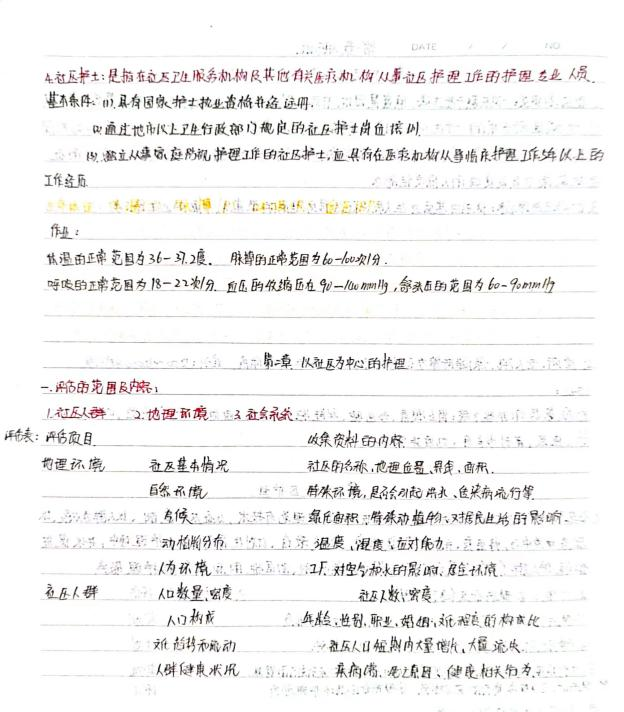 DATE / / NO
4.社区护士：是指在社区卫生服务机构及其他有关医疗机构从事社区护理工作的护理专业人员.
基本条件：(1).具有国家护士执业资格并经注册.
(2).通过地市以上卫生行政部门规定的社区护士岗位培训
(3).独立从事家庭访视护理工作的社区护士,应具有在医疗机构从事临床护理工作5年以上的
工作经历
作业：
体温的正常范围为36-37.2度. 脉搏的正常范围为60-100次/分.
呼吸的正常范围为18-22次/分. 血压的收缩压在90-140mmHg,舒张压的范围为60-90mmHg
第二章 以社区为中心的护理
一.评估的范围及内容：
1.社区人群 2.地理环境 3.社会系统
评估表：评估项目 收集资料的内容
地理环境 社区基本情况 社区的名称,地理位置、界线,面积.
自然环境 特殊环境,是否会引起洪水、传染病流行等
气候 绿化面积、特殊动植物、对居民生活的影响
动植物分布 温度、湿度、应对能力
人为环境 工厂对空气和水的影响、居住环境
社区人群 人口数量、密度 社区人数、密度
人口构成 年龄、性别、职业、婚姻、文化程度的构成比
流动 社区人口短期内大量增长、大量流失
人群健康状况 疾病谱、死亡原因、健康相关行为